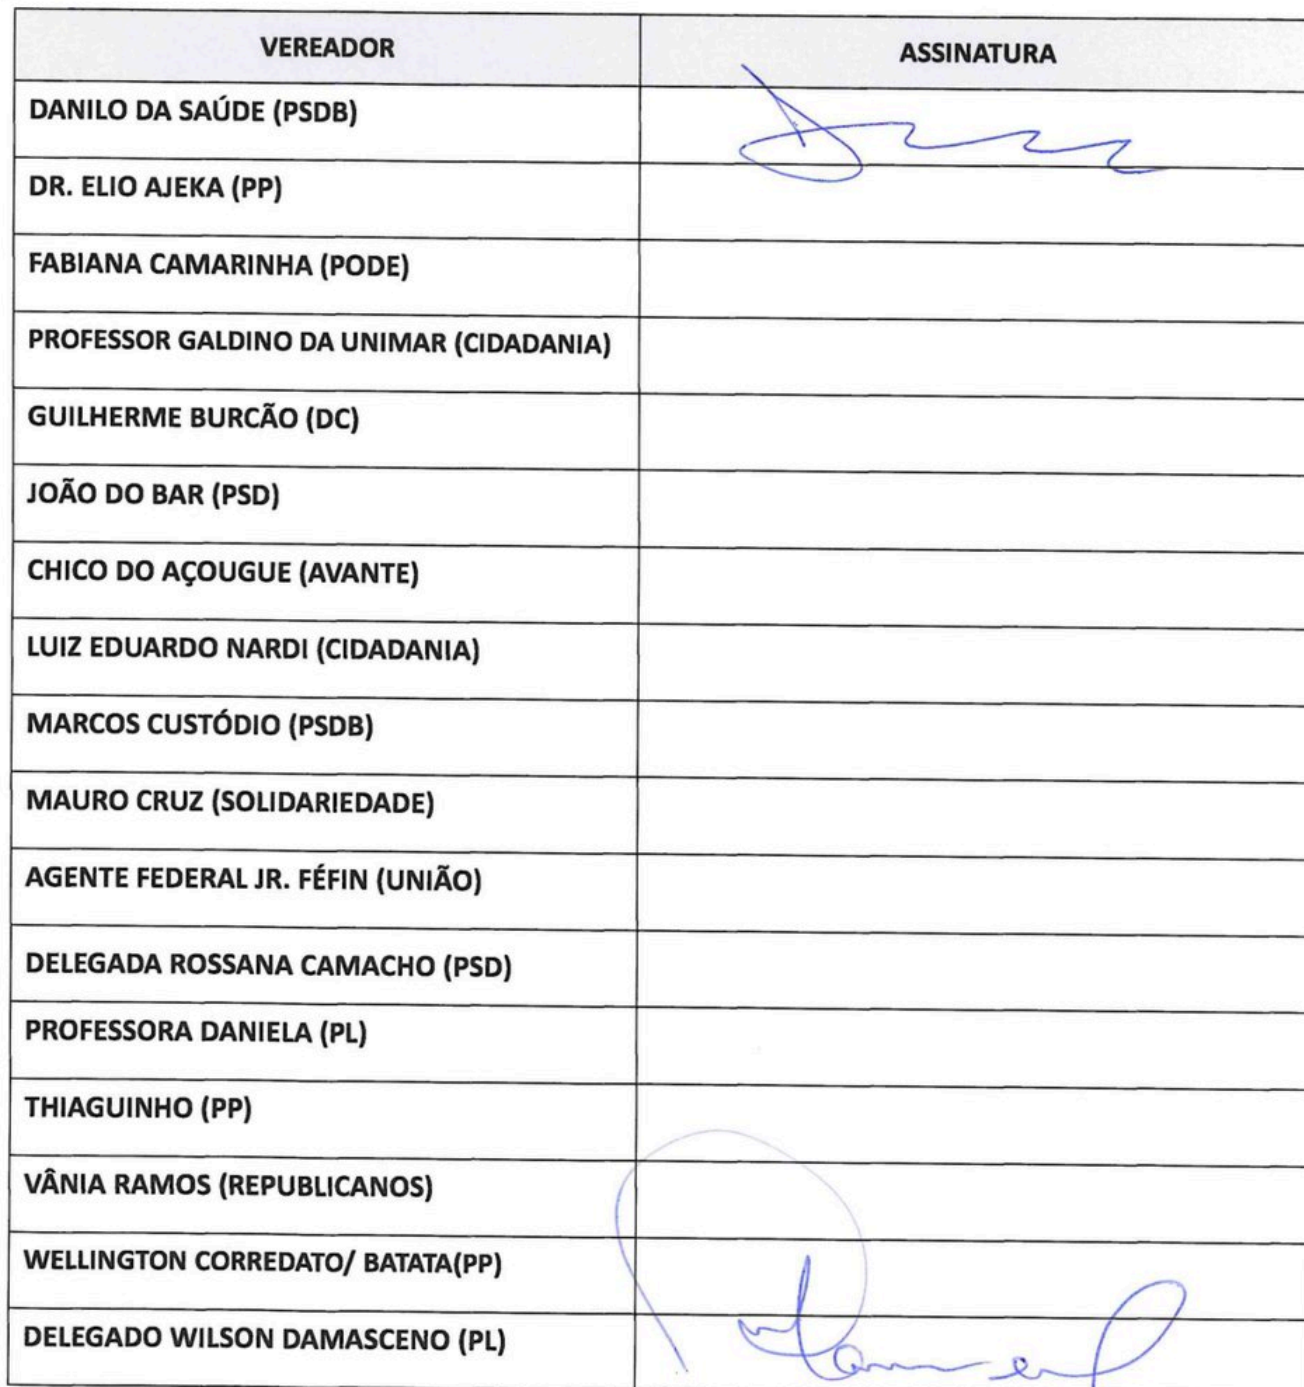 VEREADOR ASSINATURA
DANILO DA SAÚDE (PSDB)
DR. ELIO AJEKA (PP)
FABIANA CAMARINHA (PODE)
PROFESSOR GALDINO DA UNIMAR (CIDADANIA)
GUILHERME BURCÃO (DC)
JOÃO DO BAR (PSD)
CHICO DO AÇOUGUE (AVANTE)
LUIZ EDUARDO NARDI (CIDADANIA)
MARCOS CUSTÓDIO (PSDB)
MAURO CRUZ (SOLIDARIEDADE)
AGENTE FEDERAL JR. FÉFIN (UNIÃO)
DELEGADA ROSSANA CAMACHO (PSD)
PROFESSORA DANIELA (PL)
THIAGUINHO (PP)
VÂNIA RAMOS (REPUBLICANOS)
WELLINGTON CORREDATO/ BATATA(PP)
DELEGADO WILSON DAMASCENO (PL)